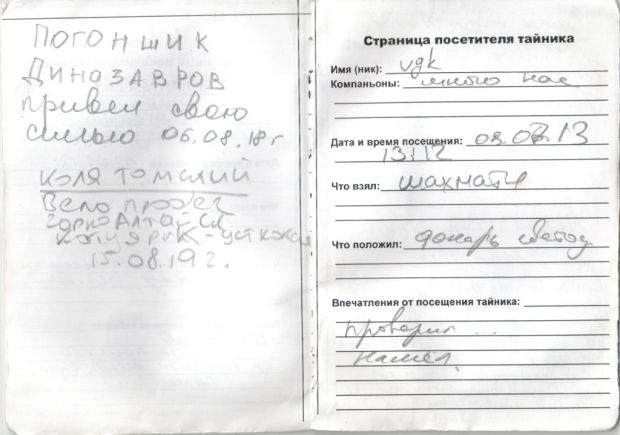 ПОГОНШИК
ДИНОЗАВРОВ
привел свою
семью 06.08.18г
КОЛЯ ТОМСКИЙ
Вело пробег
ГОРНОАЛТАЙСК
- УСТ КОКСА
15.08.19г.
Страница посетителя тайника
Имя (ник): vgk
Компаньоны: много нас
Дата и время посещения: 08.08.13
13:12
Что взял: шахматы
Что положил: фонарь светод.
Впечатления от посещения тайника:
проверил ...
нашел